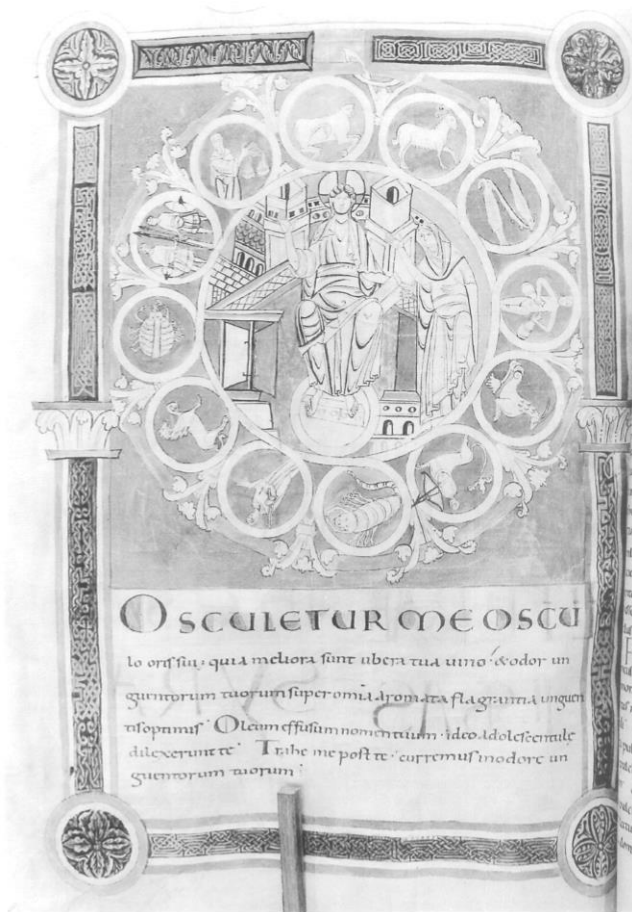 OSCULETUR ME OSCU
lo oris sui; quia meliora sunt ubera tua uino. & odor un
guentorum tuorum super omia aromata flagrantia unguen
tis optimis. Oleum effusum nomen tuum. ideo adolescentule
dilexerunt te. Trahe me post te. curremus in odore un
guentorum tuorum